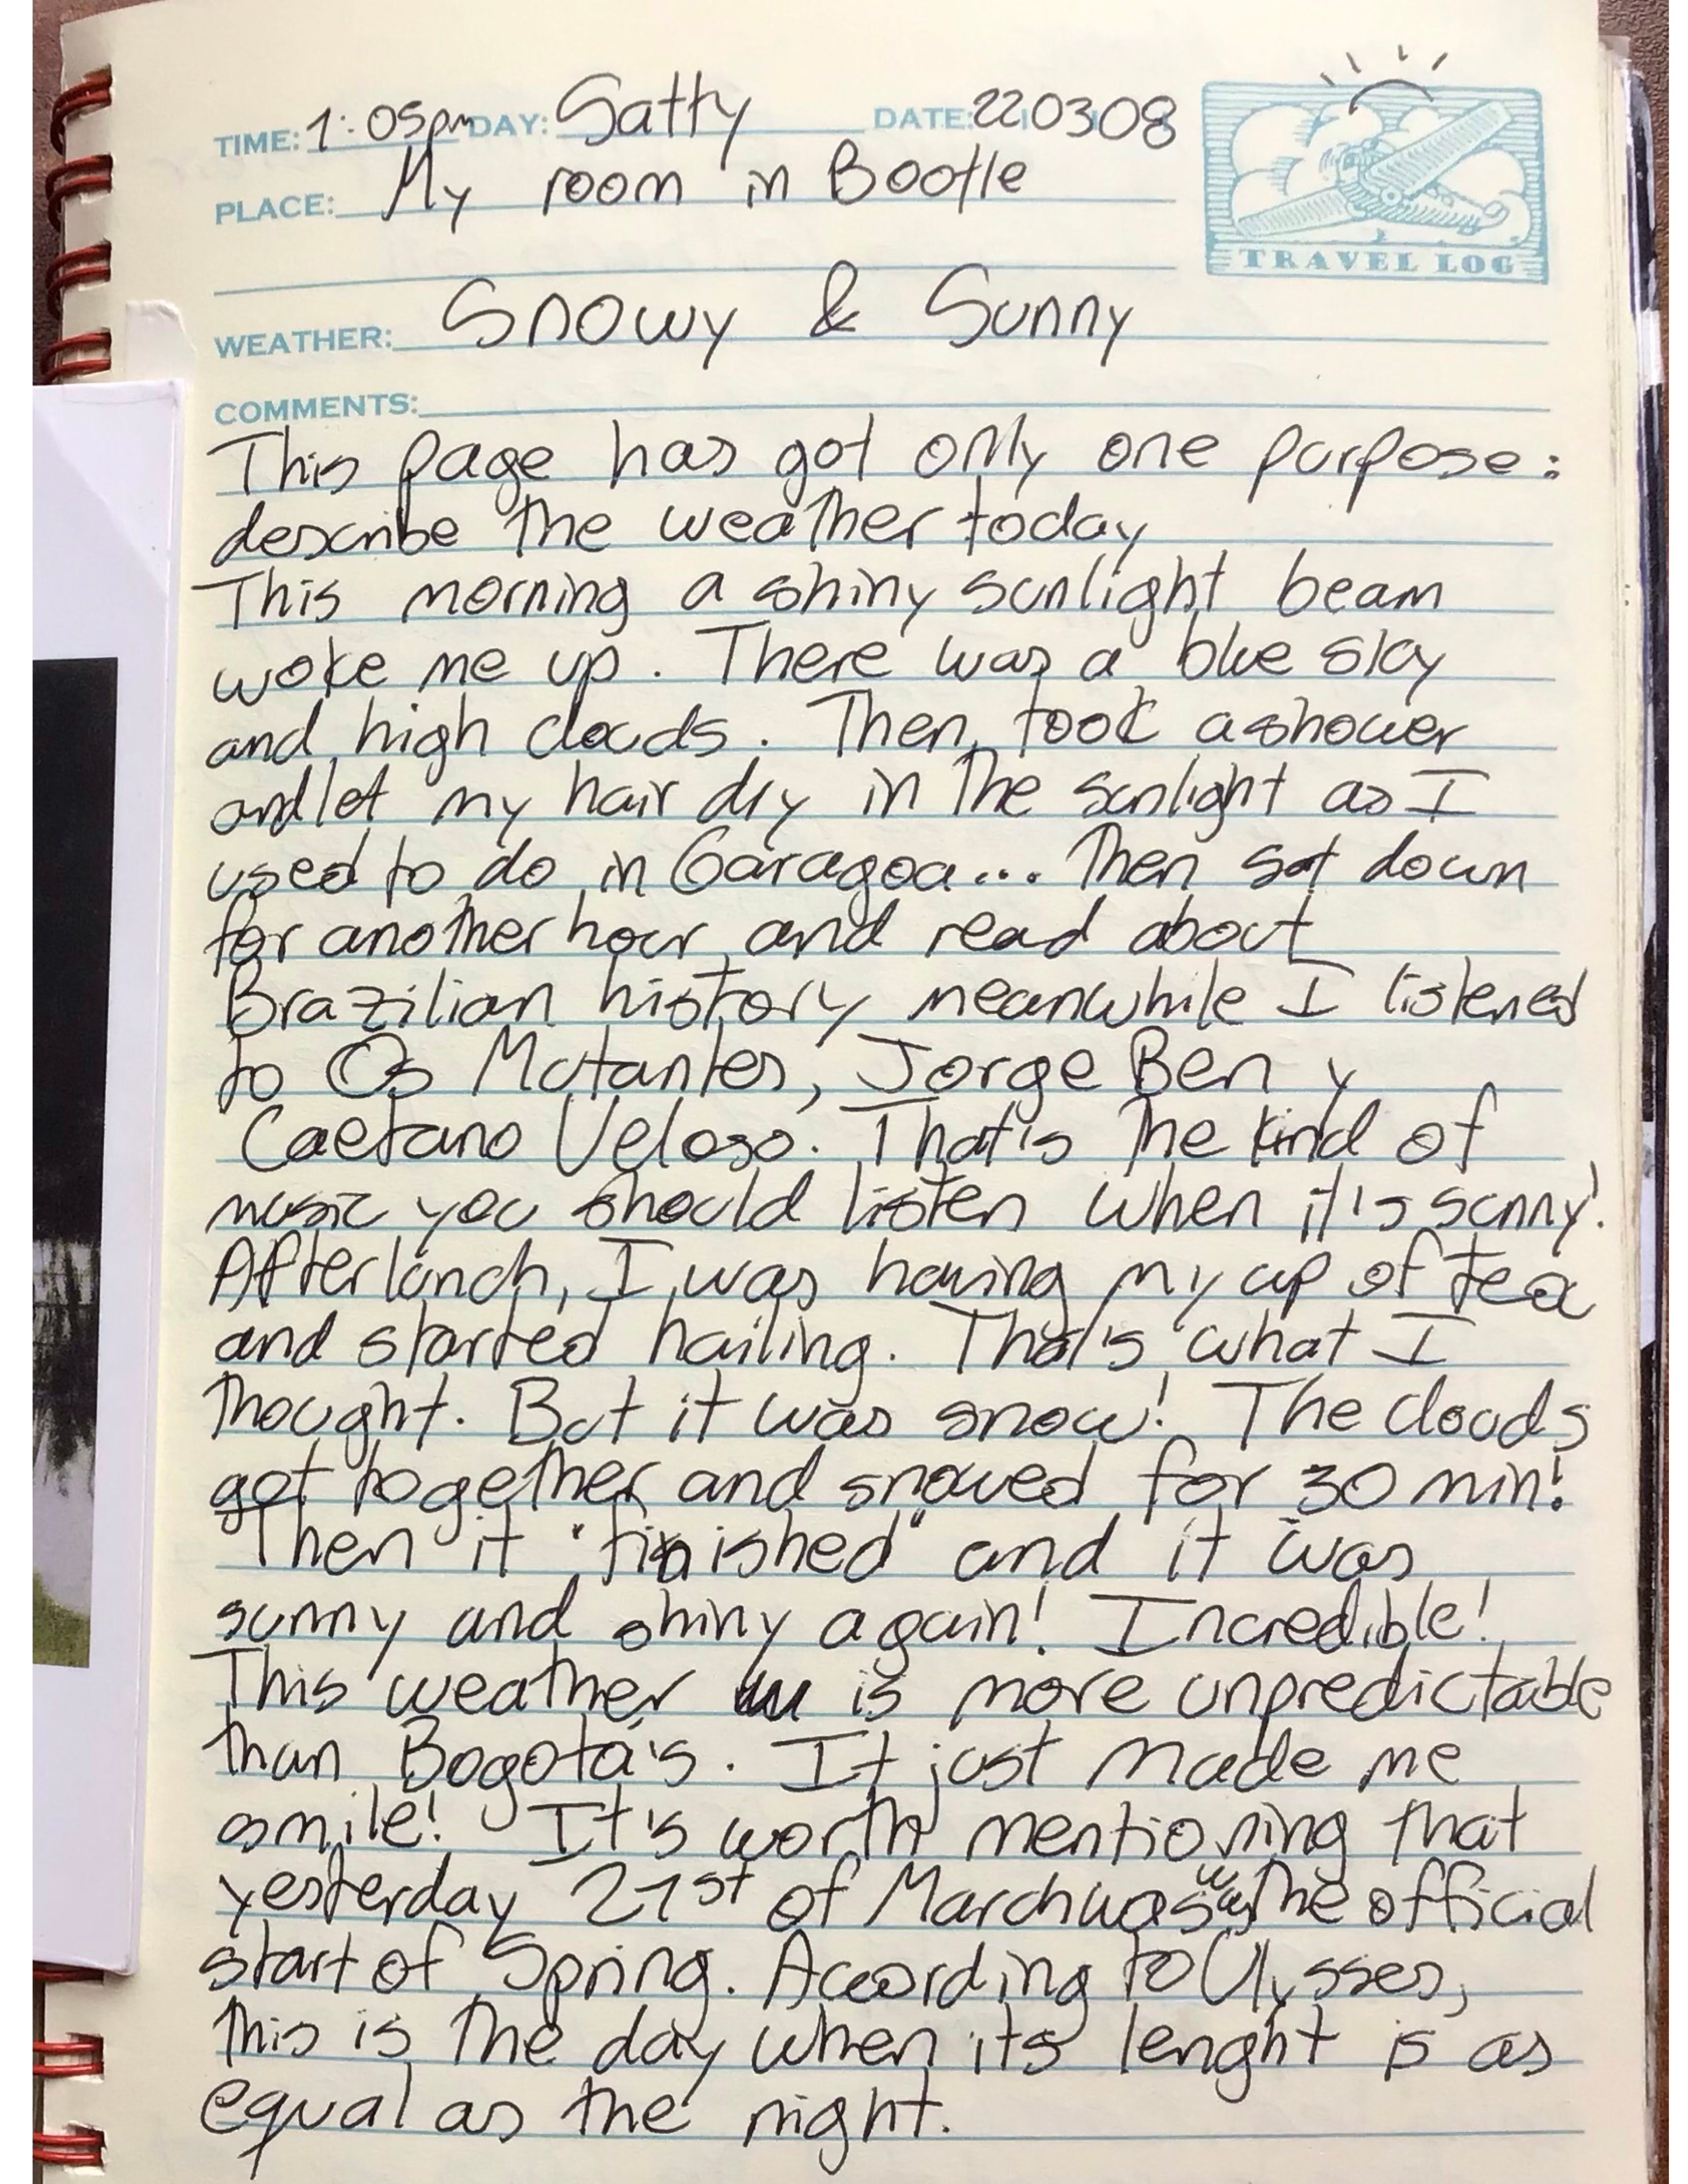 TIME: 1:05pm DAY: Satty DATE: 220308
PLACE: My room in Bootle
TRAVEL LOG
WEATHER: Snowy & Sunny
COMMENTS:
This page has got only one purpose:
describe the weather today
This morning a shiny sunlight beam
woke me up. There was a blue sky
and high clouds. Then, took a shower
and let my hair dry in the sunlight as I
used to do in Garagoa... Then sat down
for another hour and read about
Brazilian history meanwhile I listened
to Os Mutantes, Jorge Ben y
Caetano Veloso. That's the kind of
music you should listen when it's sunny!
After lunch, I was having my cup of tea
and started hailing. That's what I
thought. But it was snow! The clouds
got together and snowed for 30 min!
Then it "finished" and it was
sunny and shiny again! Incredible!
This weather is more unpredictable
than Bogota's. It just made me
smile! It's worth mentioning that
yesterday 21st of March was was the official
start of Spring. Acording to Ulysses,
this is the day when its lenght is as
equal as the night.